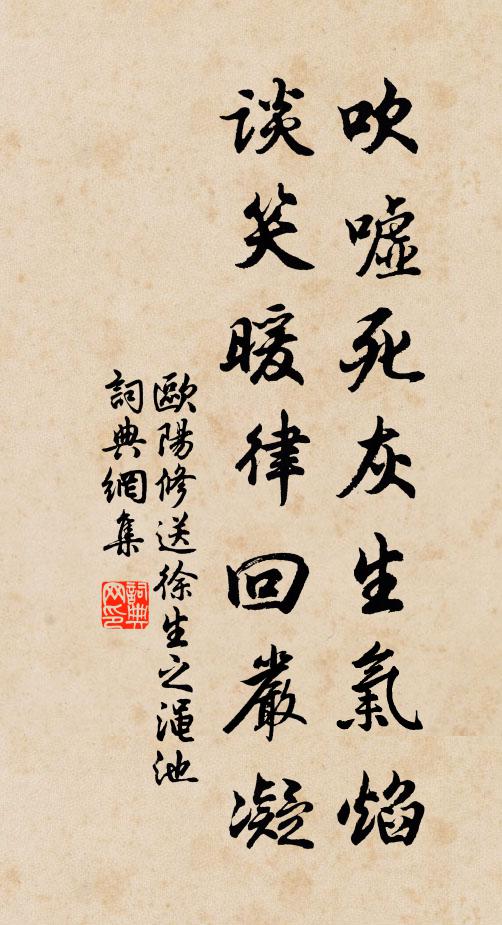 吹噓死灰生氣焰
谈笑暖律回嚴凝
歐陽修送徐生之澠池
詞典網集
詞典网印